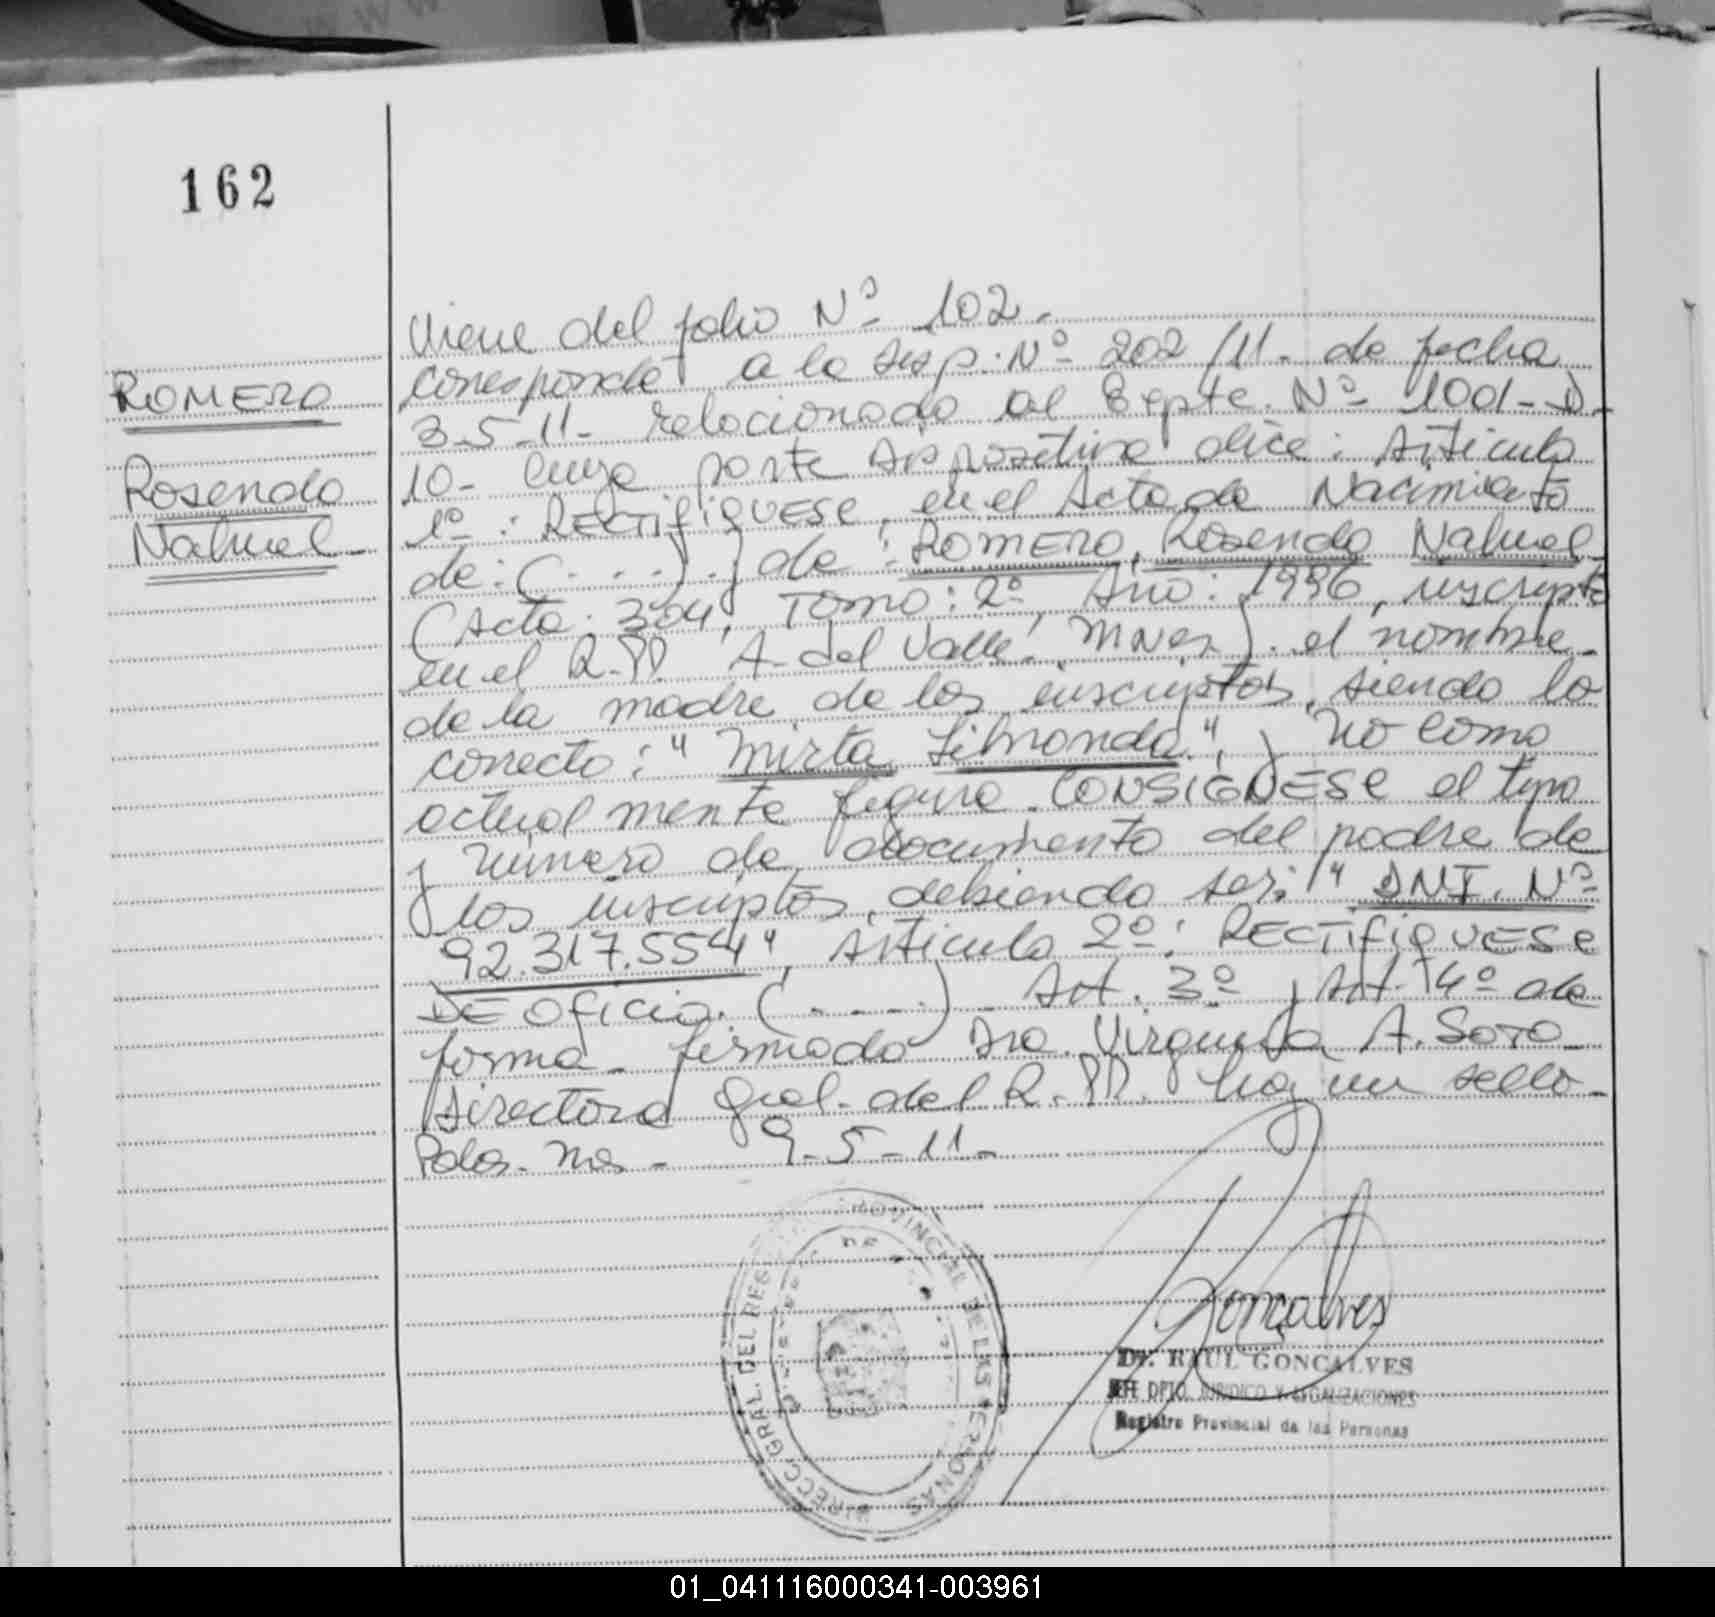 162
ROMERO
Rosendo
Nahuel-
Viene del folio Nº 102-
corresponde a la Disp. Nº 202/11- de fecha
3-5-11- relacionado al Expte. Nº 1001-D-
10- cuya parte dispositiva dice: Artículo
1º: RECTIFIQUESE, en el Acta de Nacimiento
de: (.....) y de: ROMERO, Rosendo Nahuel
(Acta: 304, Tomo: 2º, Año: 1996, inscripto
en el R.PP. A. del Valle. Mnes). el nombre-
de la madre de los inscriptos, siendo lo
correcto: " Mirta ", y no como
actualmente figura. CONSIGNESE el tipo
y número de documento del padre de
los inscriptos, debiendo ser: " DNI. Nº
92.317.554", Artículo 2º: RECTIFIQUESE
DE OFICIO. (.....) Art. 3º y Art. 4º de
forma- firmado Dra. Virginia A. SOTO-
Directora Gral. del R.PP. hay un sello-
Pdas. Mes- 9-5-11-
DIRECC. GRAL. DEL REG PROVINCIAL DE LAS PERSONAS
Gonçalves
Dr. RAUL GONCALVES
JEFE DPTO. JURIDICO Y LEGALIZACIONES
Registro Provincial de las Personas
01_041116000341-003961